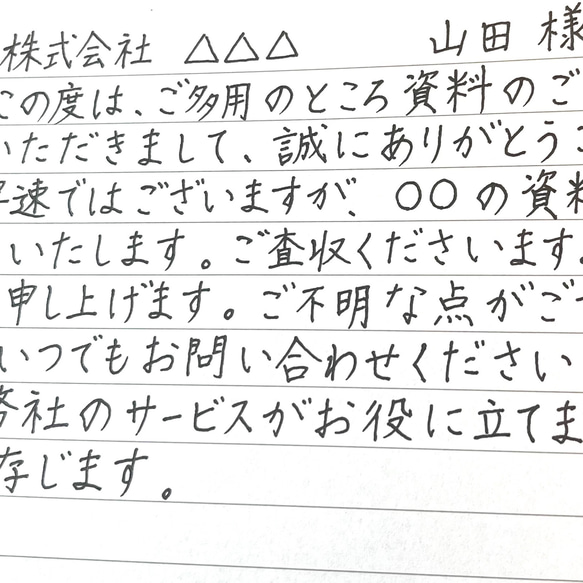 株式会社 △△△ 山田 様
この度は、ご多用のところ資料のご
いただきまして、誠にありがとうご
早速ではございますが、○○の資料
いたします。ご査収くださいます
申し上げます。ご不明な点がご
いつでもお問い合わせください
弊社のサービスがお役に立てま
存じます。